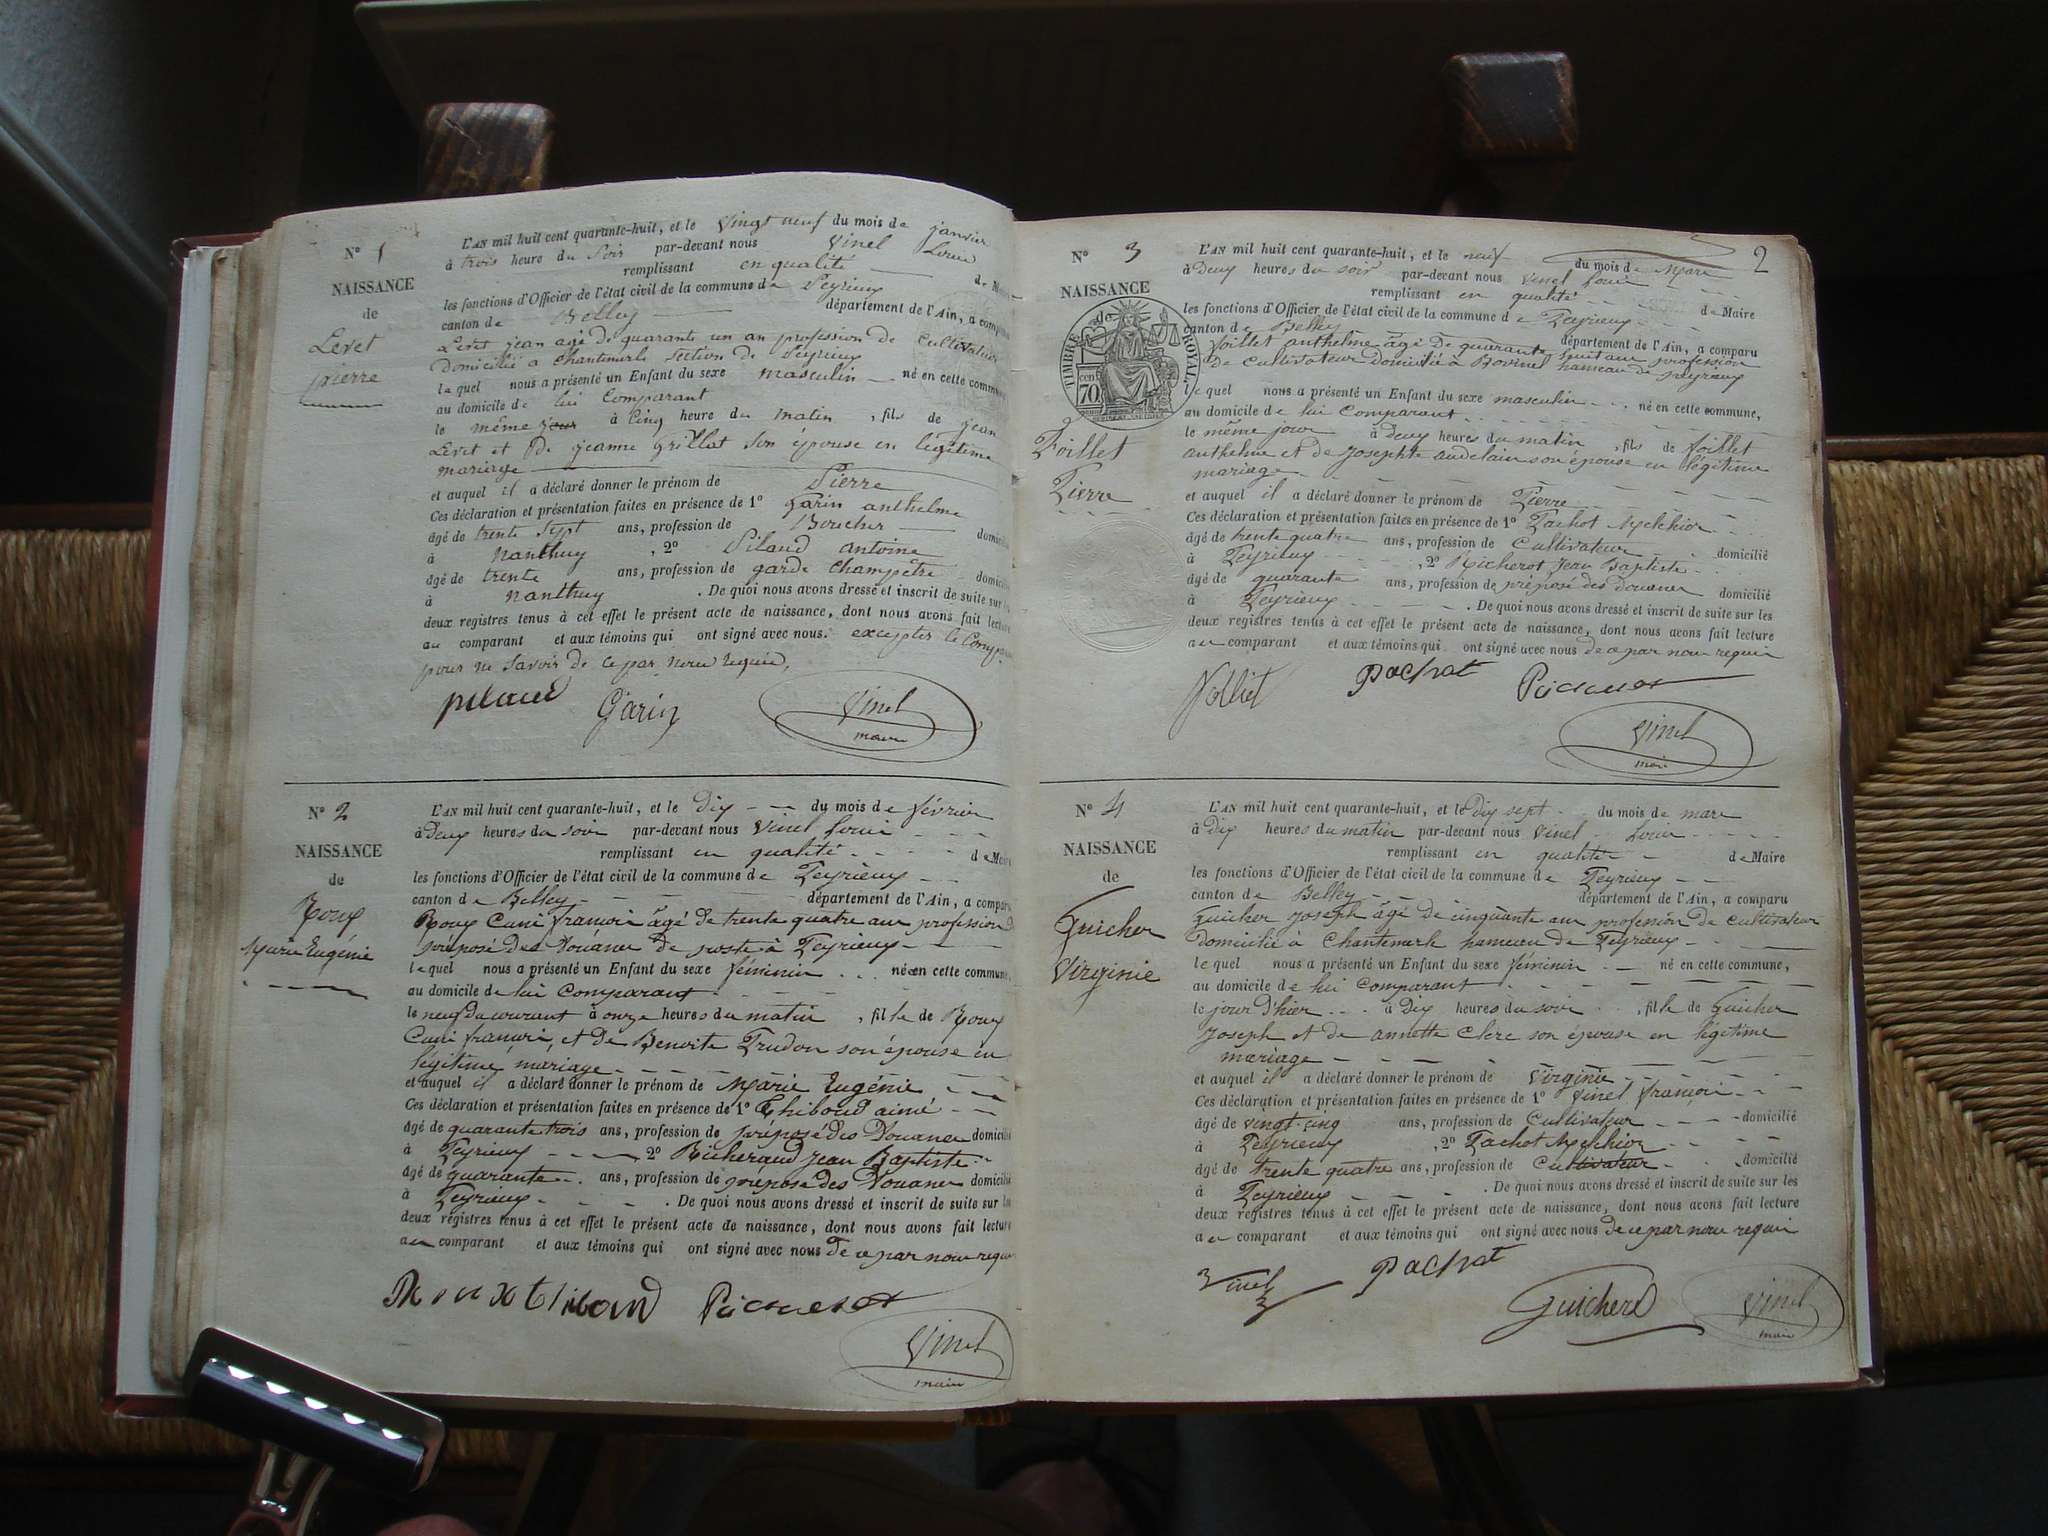 N° 1
NAISSANCE
de
Levet
pierre
L'AN mil huit cent quarante-huit, et le vingt neuf du mois de janvier
à trois heure du soir par-devant nous Vinel Louis
remplissant en qualité de Maire
les fonctions d'Officier de l'état civil de la commune de Peyrieux
canton de Belley département de l'Ain, a comparu
Levet jean agé de quarante un an profession de Cultivateur
domicilié a chantemerle section de Peyrieux
le quel nous a présenté un Enfant du sexe masculin né en cette commune
au domicile de lui Comparant
le même jour à Cinq heure du matin, fils de jean
Levet et De jeanne Grillat son épouse en légitime
mariage
et auquel il a déclaré donner le prénom de Pierre
Ces déclaration et présentation faites en présence de 1° Garin anthelme
âgé de trente sept ans, profession de Boucher domicilié
à nanthuy, 2° Piland antoine
âgé de trente ans, profession de garde champêtre domicilié
à nanthuy. De quoi nous avons dressé et inscrit de suite sur les
deux registres tenus à cet effet le présent acte de naissance, dont nous avons fait lecture
au comparant et aux témoins qui ont signé avec nous. excepter le Comparant
pour ne savoir de ce par nous requis.
Garin
Vinel
maire
N° 2
NAISSANCE
de
Roux
Marie Eugénie
L'AN mil huit cent quarante-huit, et le dix du mois de février
à Deux heures du soir par-devant nous Vinel Louis
remplissant en qualité de Maire
les fonctions d'Officier de l'état civil de la commune de Peyrieux
canton de Belley département de l'Ain, a comparu
Roux françois âgé de trente quatre ans profession
préposé des Douanes de poste à Peyrieux
le quel nous a présenté un Enfant du sexe féminin née en cette commune,
au domicile de lui Comparant
le neuf du courant à onze heures du matin, fille de Roux
françois, et de Benoite Trudon son épouse en
légitime mariage
et auquel il a déclaré donner le prénom de Marie Eugénie
Ces déclaration et présentation faites en présence de 1° Thiboud aimé
âgé de quarante trois ans, profession de préposé des Douanes domicilié
à Peyrieux 2° Richeraud jean Baptiste
âgé de quarante ans, profession de préposé des Douanes domicilié
à Peyrieux. De quoi nous avons dressé et inscrit de suite sur les
deux registres tenus à cet effet le présent acte de naissance, dont nous avons fait lecture
au comparant et aux témoins qui ont signé avec nous de ce par nous requis
Vinel
maire
2
N° 3
NAISSANCE
de
TIMBRE ROYAL
70 cen
Voillet
Pierre
L'AN mil huit cent quarante-huit, et le neuf du mois de Mars
à Deux heures du soir par-devant nous Vinel Louis
remplissant en qualité de Maire
les fonctions d'Officier de l'état civil de la commune de Peyrieux
canton de Belley département de l'Ain, a comparu
Voillet anthelme âgé de quarante huit ans profession
de cultivateur domicilié à Bovinel hameau de Peyrieux
le quel nous a présenté un Enfant du sexe masculin né en cette commune,
au domicile de lui Comparant
le même jour à Deux heures du matin, fils de Voillet
anthelme et de Josephte audelain son épouse en légitime
mariage
et auquel il a déclaré donner le prénom de Pierre
Ces déclaration et présentation faites en présence de 1° Pachot Melchior
âgé de trente quatre ans, profession de Cultivateur domicilié
à Peyrieux, 2° Richerot Jean Baptiste
âgé de quarante ans, profession de préposé des Douanes domicilié
à Peyrieux. De quoi nous avons dressé et inscrit de suite sur les
deux registres tenus à cet effet le présent acte de naissance, dont nous avons fait lecture
au comparant et aux témoins qui ont signé avec nous de ce par nous requis
Vinel
maire
N° 4
NAISSANCE
de
Guicher
Virginie
L'AN mil huit cent quarante-huit, et le Dix sept du mois de mars
à Dix heures du matin par-devant nous Vinel Louis
remplissant en qualité de Maire
les fonctions d'Officier de l'état civil de la commune de Peyrieux
canton de Belley département de l'Ain, a comparu
Guicher Joseph âgé de cinquante ans profession de cultivateur
domicilié à Chantemerle hameau de Peyrieux
le quel nous a présenté un Enfant du sexe féminin né en cette commune,
au domicile de lui comparant
le jour d'hier à Dix heures du soir, fille de Guicher
Joseph et de annette Clerc son épouse en légitime
mariage
et auquel il a déclaré donner le prénom de Virginie
Ces déclaration et présentation faites en présence de 1° Vinel françois
âgé de vingt-cinq ans, profession de Cultivateur domicilié
à Peyrieux, 2° Pachot Melchior
âgé de trente quatre ans, profession de Cultivateur domicilié
à Peyrieux. De quoi nous avons dressé et inscrit de suite sur les
deux registres tenus à cet effet le présent acte de naissance, dont nous avons fait lecture
au comparant et aux témoins qui ont signé avec nous de ce par nous requis
Vinel
Guicherd
Vinel
maire